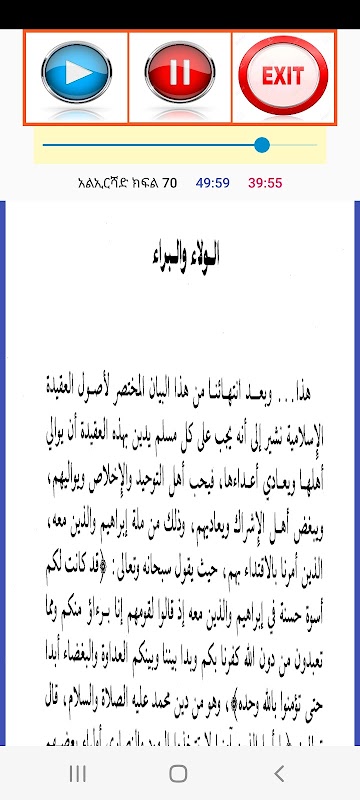 EXIT
አልኢርሻድ ክፍል 70 49:59 39:55
الولاء والبراء
هذا... وبعد انتهائنا من هذا البيان المختصر لأصول العقيدة
الإسلامية نشير إلى أنه يجب على كل مسلم يدين بهذه العقيدة أن يوالي
أهلها ويعادي أعداءها، فيحب أهل التوحيد والإخلاص ويواليهم،
ويبغض أهل الإشراك ويعاديهم، وذلك من ملة إبراهيم والذين معه،
الذين أمرنا بالاقتداء بهم، حيث يقول سبحانه وتعالى: ﴿قد كانت لكم
أسوة حسنة في إبراهيم والذين معه إذ قالوا لقومهم إنا برءاؤ منكم ومما
تعبدون من دون الله كفرنا بكم وبدا بيننا وبينكم العداوة والبغضاء أبدا
حتى تؤمنوا بالله وحده﴾، وهو من دين محمد عليه الصلاة والسلام، قال